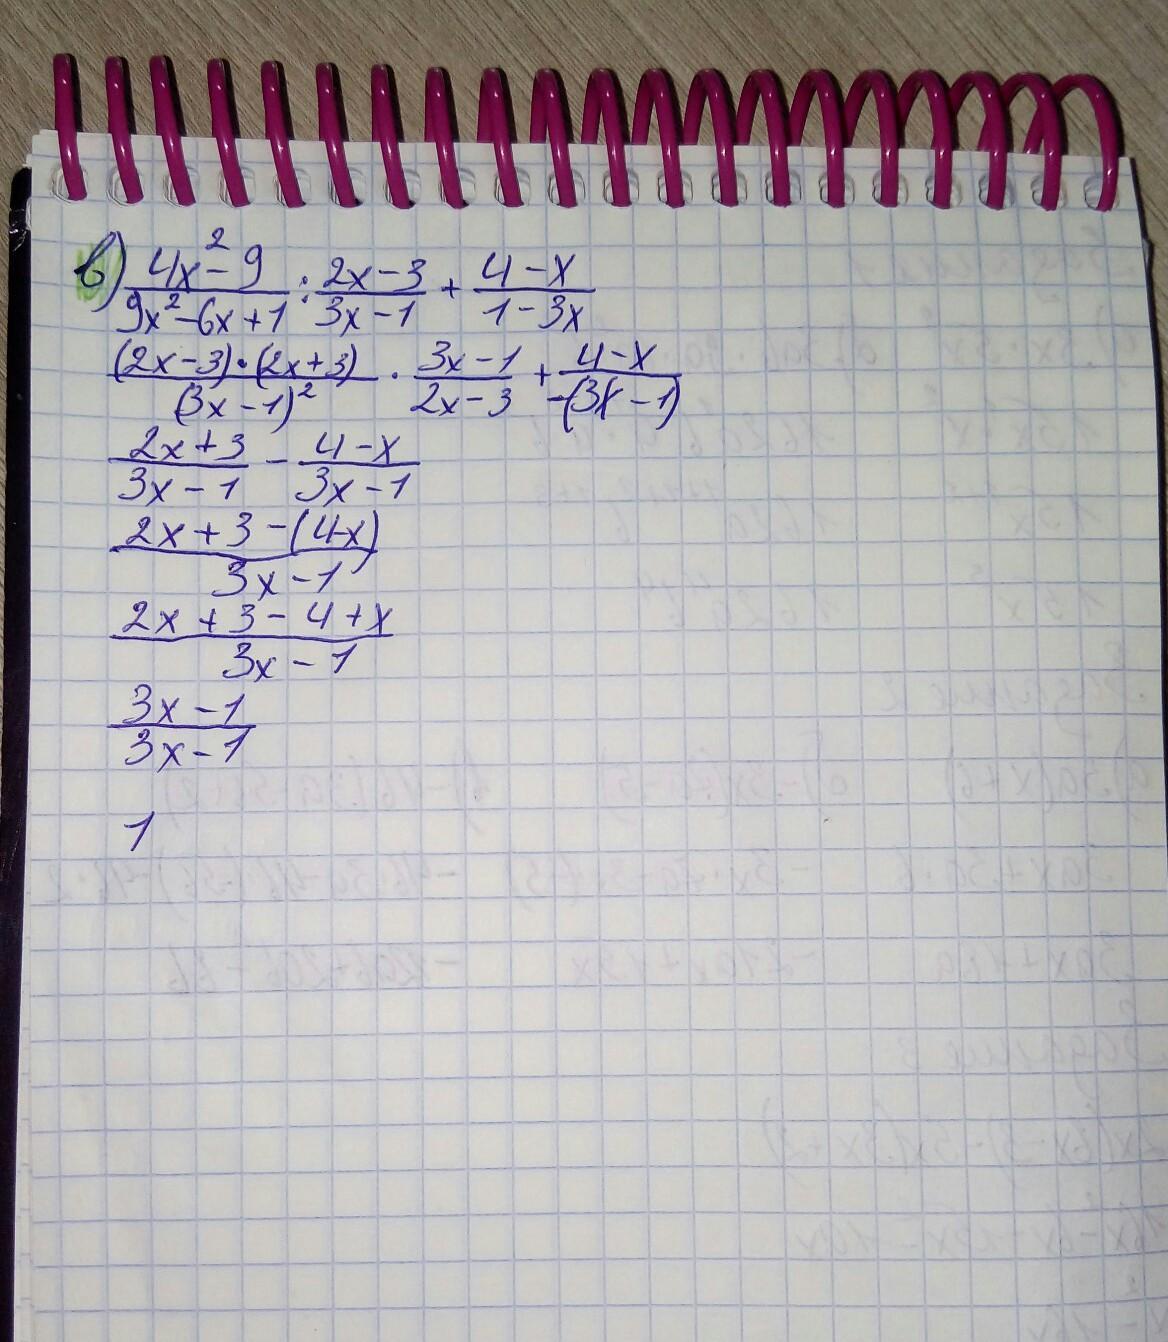 в) (4x²-9)/(9x²-6x+1) : (2x-3)/(3x-1) + (4-x)/(1-3x)
((2x-3)·(2x+3))/(3x-1)² · (3x-1)/(2x-3) + (4-x)/(-(3x-1))
(2x+3)/(3x-1) - (4-x)/(3x-1)
(2x+3-(4-x))/(3x-1)
(2x+3-4+x)/(3x-1)
(3x-1)/(3x-1)
1